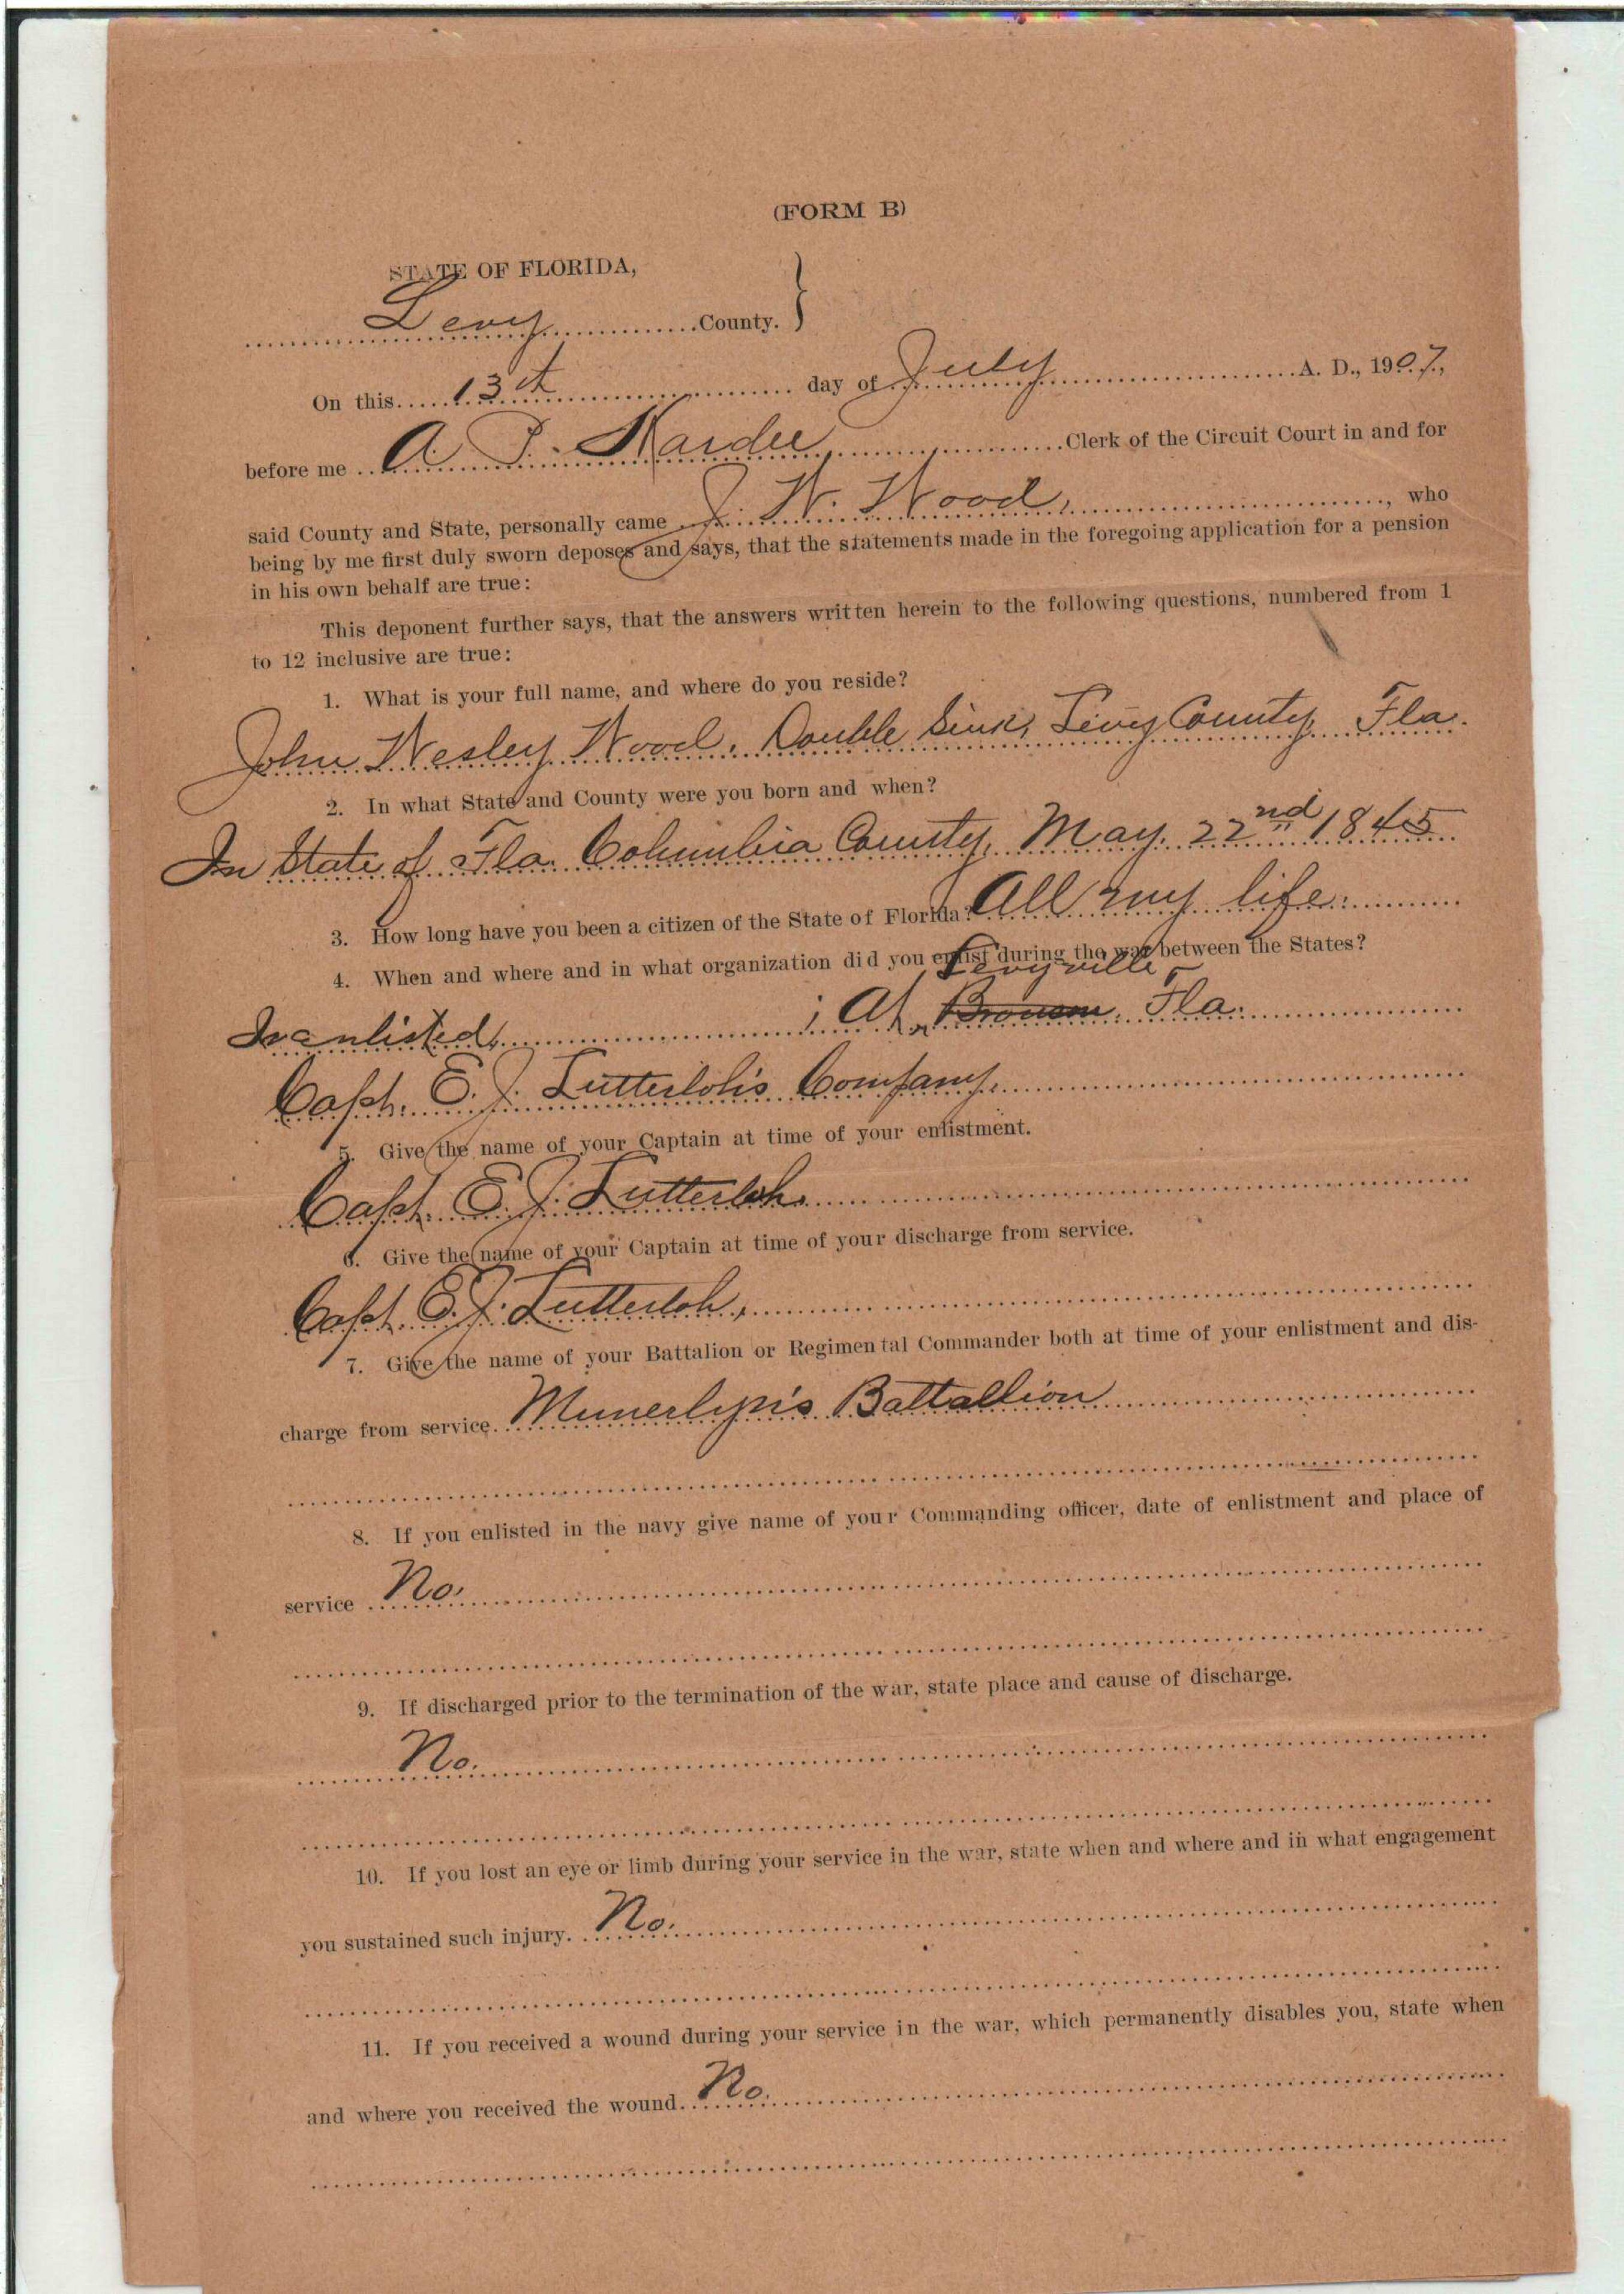 (FORM B)
STATE OF FLORIDA,
Levy County. }
On this 13th day of July A. D., 1907,
before me A. P. Hardee Clerk of the Circuit Court in and for
said County and State, personally came J. W. Wood, who
being by me first duly sworn deposes and says, that the statements made in the foregoing application for a pension
in his own behalf are true:
This deponent further says, that the answers written herein to the following questions, numbered from 1
to 12 inclusive are true:
1. What is your full name, and where do you reside?
John Wesley Wood. Double Sink, Levy County, Fla.
2. In what State and County were you born and when?
In State of Fla. Columbia County, May. 22nd 1845.
3. How long have you been a citizen of the State of Florida? All my life.
4. When and where and in what organization did you enlist during the war between the States?
Levyville,
enlisted, ; At Bronson, Fla.
Capt. E. J. Lutterloh's Company.
5. Give the name of your Captain at time of your enlistment.
Capt. E. J. Lutterloh.
6. Give the name of your Captain at time of your discharge from service.
Capt. E. J. Lutterloh,
7. Give the name of your Battalion or Regimental Commander both at time of your enlistment and dis-
charge from service. Munerlyn's Battallion
8. If you enlisted in the navy give name of your Commanding officer, date of enlistment and place of
service No.
9. If discharged prior to the termination of the war, state place and cause of discharge.
No.
10. If you lost an eye or limb during your service in the war, state when and where and in what engagement
you sustained such injury. No.
11. If you received a wound during your service in the war, which permanently disables you, state when
and where you received the wound. No.